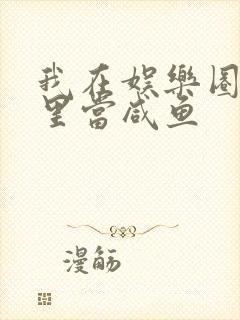 我在娱樂圈
里當咸鱼
漫觞